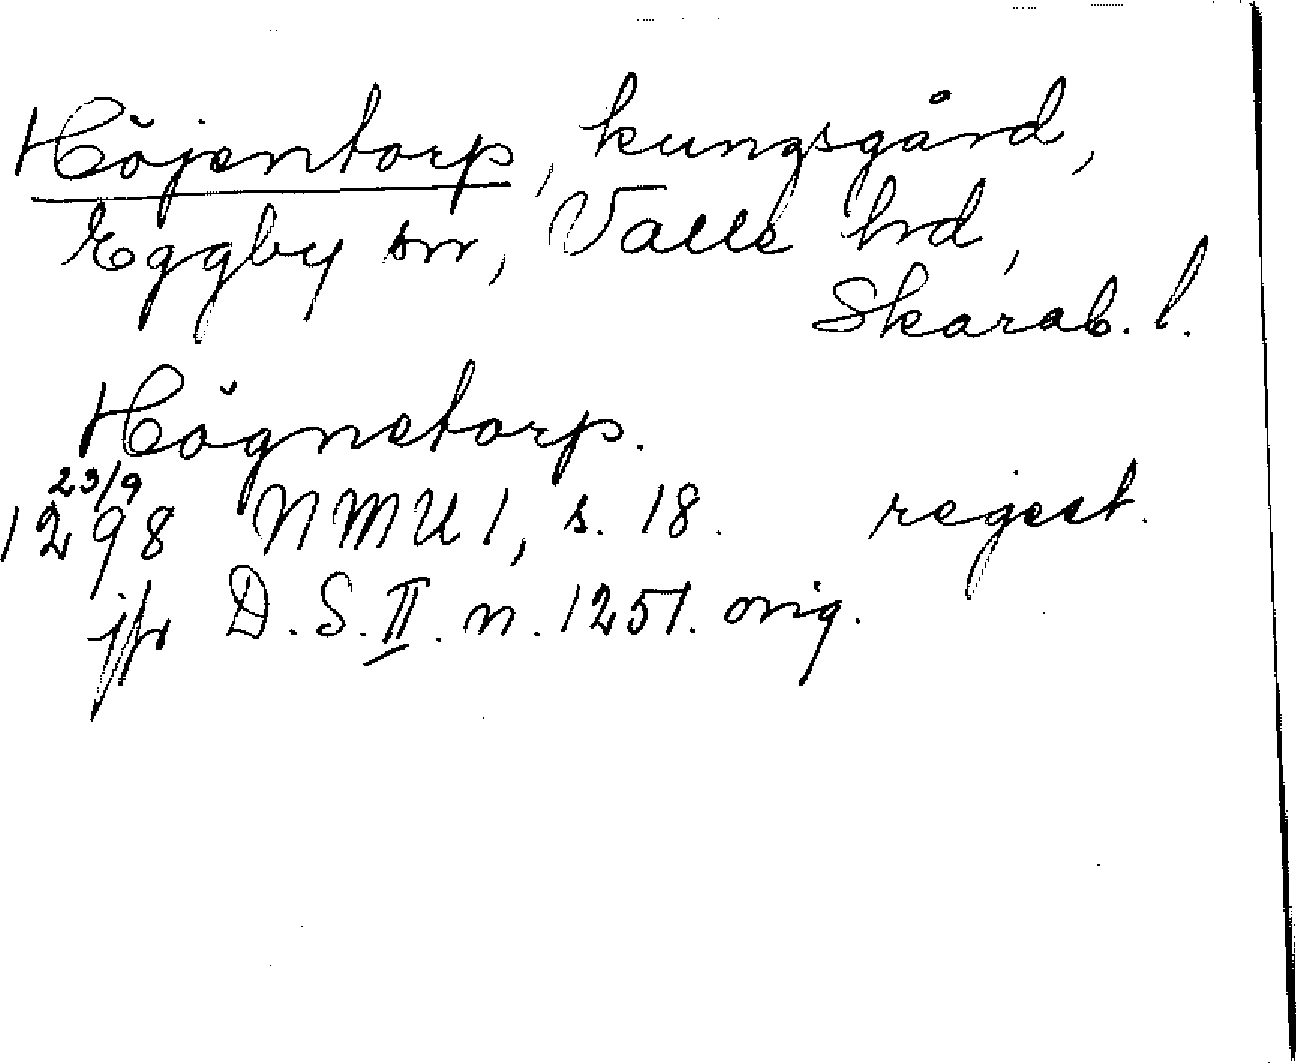 Höjentorp, kungsgård,
Eggby sn, Valle hd,
Skarab. l.
Högnetorp.
23/9
1298 NMU 1, s. 18. regest.
jfr D.S. II. n. 1251. orig.